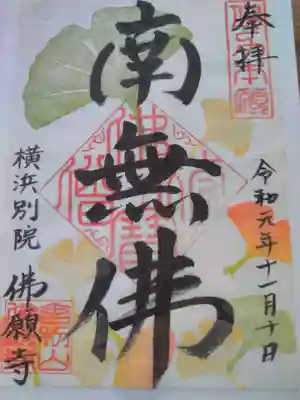 奉拝
令和元年十一月十日
南無佛
横浜別院 佛願寺